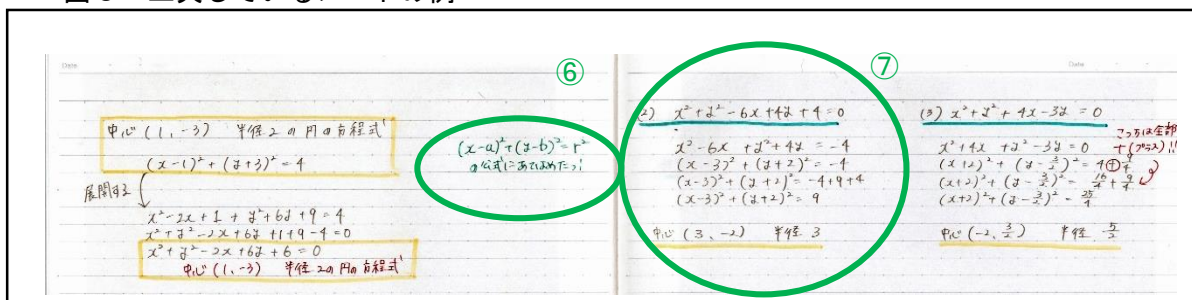 Date
⑥
⑦
Date
中心 (1, -3) 半径 2 の 円の方程式
(x-1)²+(y+3)²=4
展開する
x²-2x+1+y²+6y+9=4
x²+y²-2x+6y+1+9-4=0
x²+y²-2x+6y+6=0
中心 (1, -3) 半径 2の 円の 方程式
(x-a)²+(y-b)²=r²
の公式にあてはめたっ!
(2) x²+y²-6x+4y+4=0
x²-6x+y²+4y=-4
(x-3)²+(y+2)²=-4
(x-3)²+(y+2)²=-4+9+4
(x-3)²+(y+2)²=9
中心 (3, -2) 半径 3
(3) x²+y²+4x-3y=0
こっちは全部
+(プラス)!!
x²+4x+y²-3y=0
(x+2)²+(y-3/2)²=4+9/4
(x+2)²+(y-3/2)²=16/4+9/4
(x+2)²+(y-3/2)²=25/4
中心 (-2, 3/2) 半径 5/2